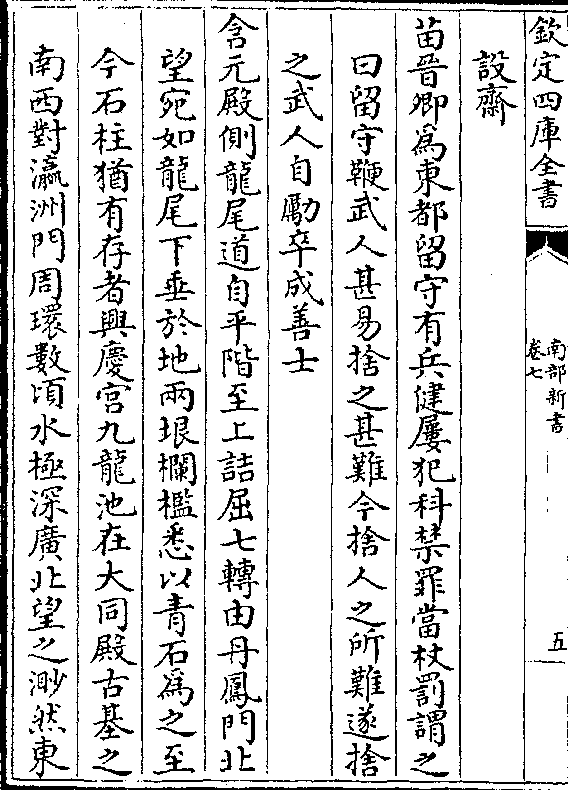 欽定四庫全書
南部新書
卷七
五
設齋
苗晉卿爲東都留守有兵健屢犯科禁罪當杖罰謂之
曰留守鞭武人甚易捨之甚難今捨人之所難遂捨
之武人自勵卒成善士
含元殿側龍尾道自平階至上詰屈七轉由丹鳳門北
望宛如龍尾下垂於地兩垠欄檻悉以青石爲之至
今石柱猶有存者興慶宮九龍池在大同殿古基之
南西對瀛洲門周環數頃水極深廣北望之渺然東